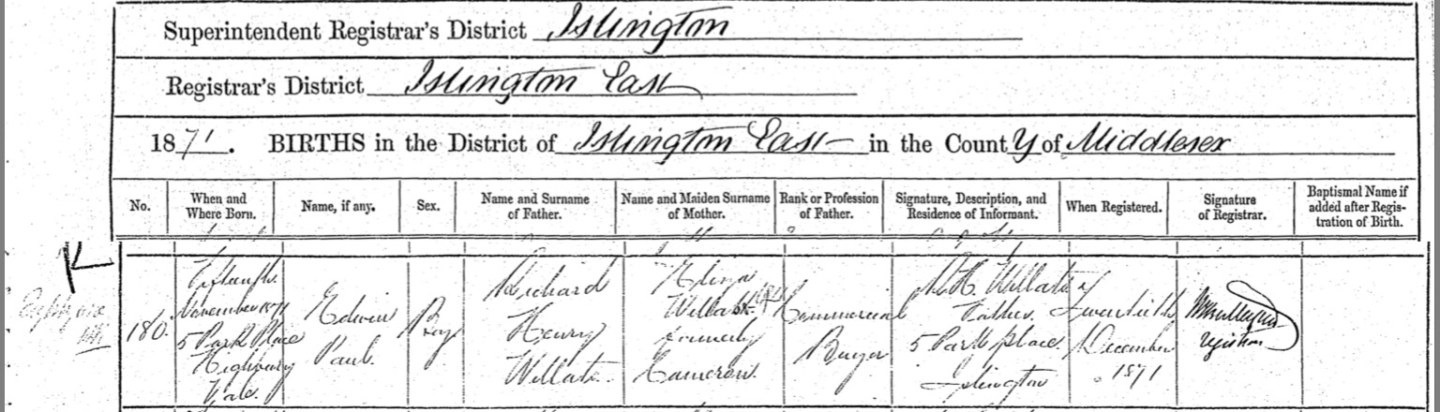 Superintendent Registrar's District Islington
Registrar's District Islington East
1871. BIRTHS in the District of Islington East in the County of Middlesex
No.
When and
Where Born.
Name, if any.
Sex.
Name and Surname
of Father.
Name and Maiden Surname
of Mother.
Rank or Profession
of Father.
Signature, Description, and
Residence of Informant.
When Registered.
Signature
of Registrar.
Baptismal Name if
added after Regis-
tration of Birth.
180.
Fifteenth
November 1871
5 Park Place
Highbury
Vale.
Edwin
Paul.
Boy
Richard
Henry
Willats.
Willats
formerly
Cameron.
Commercial
Buyer
R H Willats
Father.
5 Park place
Islington
Twentieth
December
1871
Registrar